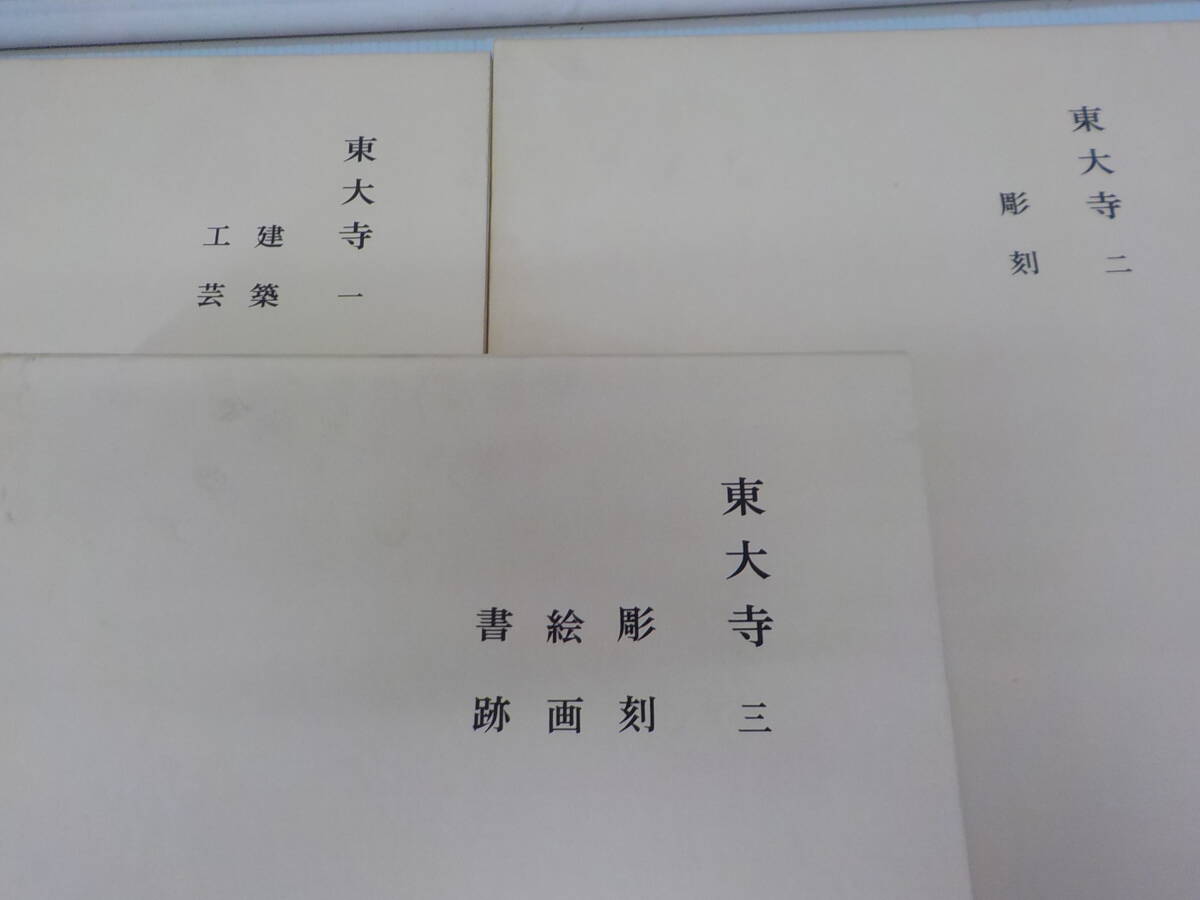 東大寺 一
建築
工芸
東大寺 二
彫刻
東大寺 三
彫刻
絵画
書跡